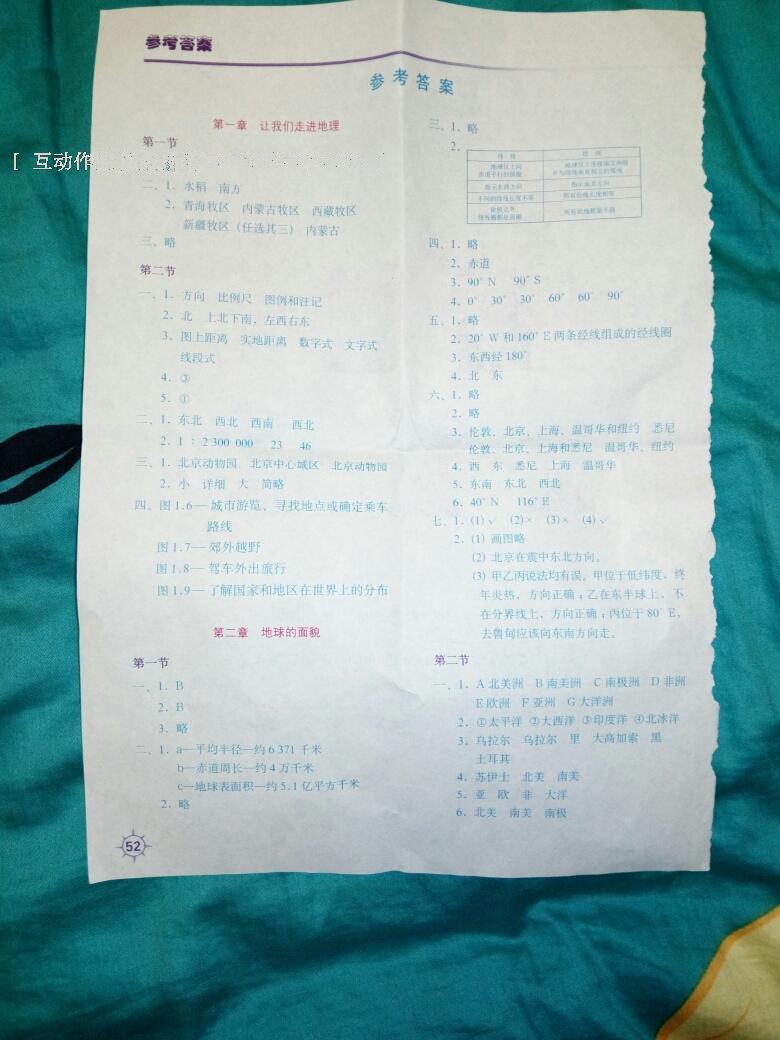 参考答案
参考答案
第一章 让我们走进地理
第一节
[ 互动作
二、1. 水稻 南方
2. 青海牧区 内蒙古牧区 西藏牧区
新疆牧区(任选其三) 内蒙古
三、略
第二节
一、1. 方向 比例尺 图例和注记
2. 北 上北下南,左西右东
3. 图上距离 实地距离 数字式 文字式
线段式
4. ③
5. ①
二、1. 东北 西北 西南 西北
2. 1∶2 300 000 23 46
三、1. 北京动物园 北京中心城区 北京动物园
2. 小 详细 大 简略
四、图1.6—城市游览、寻找地点或确定乘车
路线
图1.7—郊外越野
图1.8—驾车外出旅行
图1.9—了解国家和地区在世界上的分布
第二章 地球的面貌
第一节
一、1. B
2. B
3. 略
二、1. a—平均半径—约6 371千米
b—赤道周长—约4万千米
c—地球表面积—约5.1亿平方千米
2. 略
52
三、1. 略
2.
纬线 经线
地球仪上同赤道平行的圆圈
指示东西方向 指示南北方向
不同的纬线长度不等 所有经线长度相等
四、1. 略
2. 赤道
3. 90°N 90°S
4. 0° 30° 30° 60° 60° 90°
五、1. 略
2. 20°W和160°E两条经线组成的经线圈
3. 东西经180°
4. 北 东
六、1. 略
2. 略
3. 伦敦、北京、上海、温哥华和纽约 悉尼
伦敦、北京、上海和悉尼 温哥华、纽约
4. 西 东 悉尼 上海 温哥华
5. 东南 东北 西北
6. 40°N 116°E
七、1. (1)√ (2)× (3)× (4)√
2. (1) 画图略
(2) 北京在震中东北方向。
(3) 甲乙丙说法均有误。甲位于低纬度、终
年炎热,方向正确;乙在东半球上、不
在分界线上,方向正确;丙位于80°E,
去鲁甸应该向东南方向走。
第二节
一、1. A北美洲 B南美洲 C南极洲 D非洲
E欧洲 F亚洲 G大洋洲
2. ①太平洋 ②大西洋 ③印度洋 ④北冰洋
3. 乌拉尔 乌拉尔 里 大高加索 黑
土耳其
4. 苏伊士 北美 南美
5. 亚 欧 非 大洋
6. 北美 南美 南极